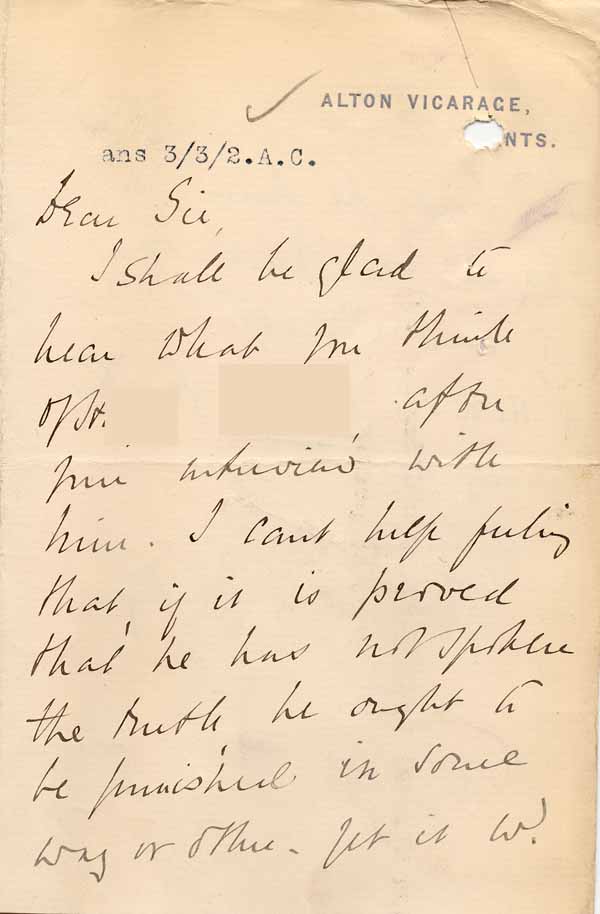 ALTON VICARAGE,
NTS.
ans 3/3/2.A.C.
Dear Sir,
I shall be glad to
hear what you think
of
after
your interview with
him. I cant help feeling
that, if it is proved
that he has not spoken
the truth, he ought to
be punished in some
way or other - yet it wd.